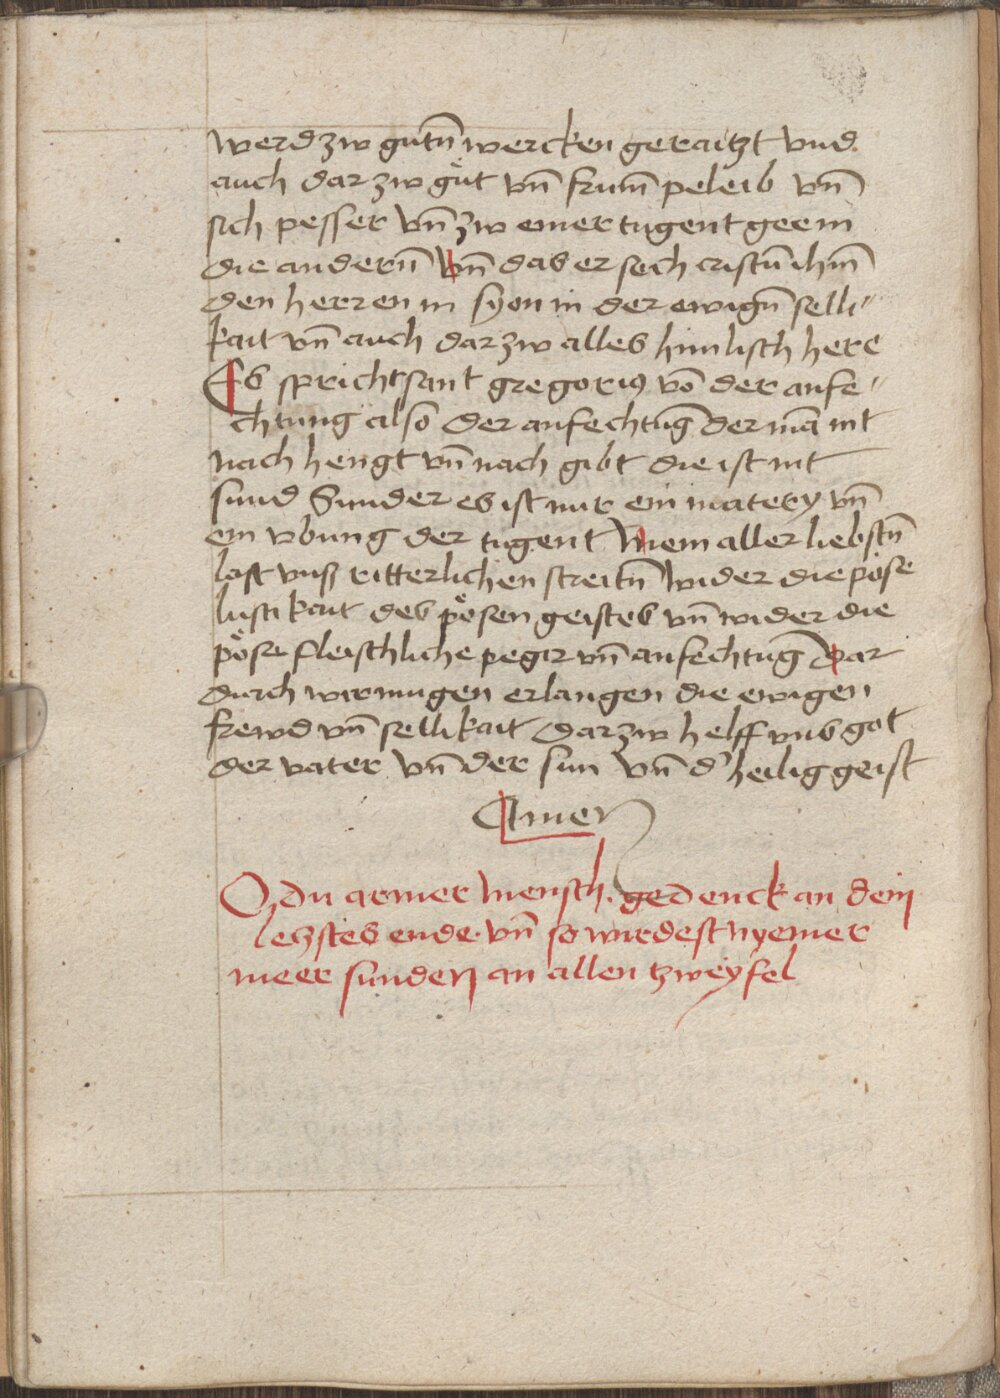 werd zw gutn̄ wercken geraitzt vnd
auch dar zw gůt vn̄ frum̄ peleib vn̄
sich pesser vn̄ zw einer tugent gee in
die andern̄ Vn̄ das er sech cristū ihm̄
den herren in syon in der ewign̄ selli〃
kait vn̄ auch dar zw alles himlisch here
Es spricht sant gregorius vō der anfe〃
chtung alsō der anfechtūg der mā nit
nach hengt vn̄ nach gibt die ist nit
sund Sunder es ist nur ein matery vn̄
ein vbung der tugent Mein aller liebstn̄
last vnß ritterlichen streitn̄ wider die pöse
lustikait des pösen geistes vn̄ wider die
pöse fleischliche pegir vn̄ anfechtūg Dar
durch wir mugen erlangen die ewigen
frewd vn̄ sellikait Dar zw helff vns got
der vater vn̄ der sun vn̄ d' heilig geist
Amen
O du armer mensch. gedenck an dein
letzstes ende. vn̄ so wirdest nyemer
meer sunden an allen tzweyfel